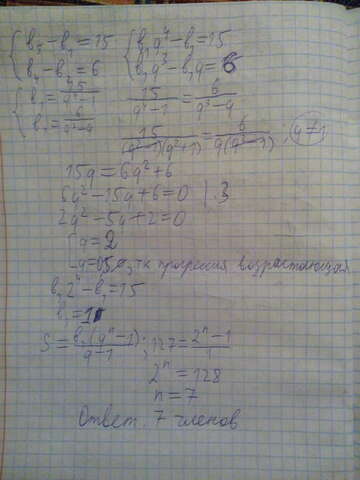 { b₅ − b₁ = 15   { b₁q⁴ − b₁ = 15
{ b₄ − b₂ = 6   { b₁q³ − b₁q = 6
{ b₁ = 15/(q⁴−1)   15/(q⁴−1) = 6/(q³−q)
{ b₁ = 6/(q³−q)   15/((q²−1)(q²+1)) = 6/(q(q²−1)), q≠1
15q = 6q² + 6
6q² − 15q + 6 = 0 | :3
2q² − 5q + 2 = 0
[ q = 2
[ q = 0,5 ∅, тк прогрессия возрастающая
b₁2⁴ − b₁ = 15
b₁ = 1
S = b₁(qⁿ−1)/(q−1) ; 127 = (2ⁿ−1)/1
2ⁿ = 128
n = 7
Ответ. 7 членов